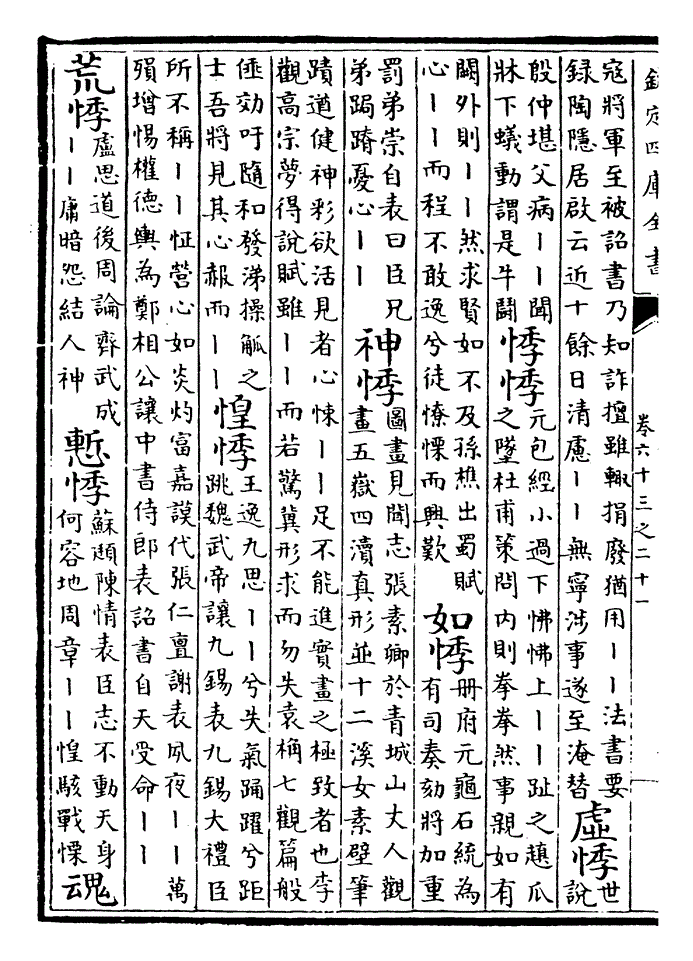 欽定四庫全書
卷六十三之二十一
宼將軍至被詔書乃知詐擅雖輙捐廢猶用丨丨法書要
録陶隱居啟云近十餘日清慮丨丨無寧涉事遂至淹替
虛悸
世
說
殷仲堪父病丨丨聞
牀下蟻動謂是牛鬪
悸悸
元包經小過下怫怫上丨丨趾之趮瓜
之墜杜甫策問内則拳拳然事親如有
闕外則丨丨然求賢如不及孫樵出蜀賦
心丨丨而程不敢逸兮徒憭慄而興歎
如悸
册府元龜石統為
有司奏劾將加重
罰弟崇自表曰臣兄
弟跼蹐憂心丨丨
神悸
圖畫見聞志張素卿於青城山丈人觀
畫五嶽四瀆真形並十二溪女素壁筆
蹟遒健神彩欲活見者心悚丨丨足不能進實畫之極致者也李
觀高宗夢得說賦雖丨丨而若驚冀形求而勿失袁桷七觀篇般
倕効吁隨和發涕操觚之
士吾將見其心赧而丨丨
惶悸
王逸九思丨丨兮失氣踊躍兮距
跳魏武帝讓九錫表九錫大禮臣
所不稱丨丨怔營心如炎灼富嘉謨代張仁亶謝表夙夜丨丨萬
殞增惕權德輿為鄭相公讓中書侍郎表詔書自天受命丨丨
荒悸
盧思道後周論齊武成
丨丨庸暗怨結人神
慙悸
蘇頲陳情表臣志不動天身
何容地周章丨丨惶駭戰慄
魂